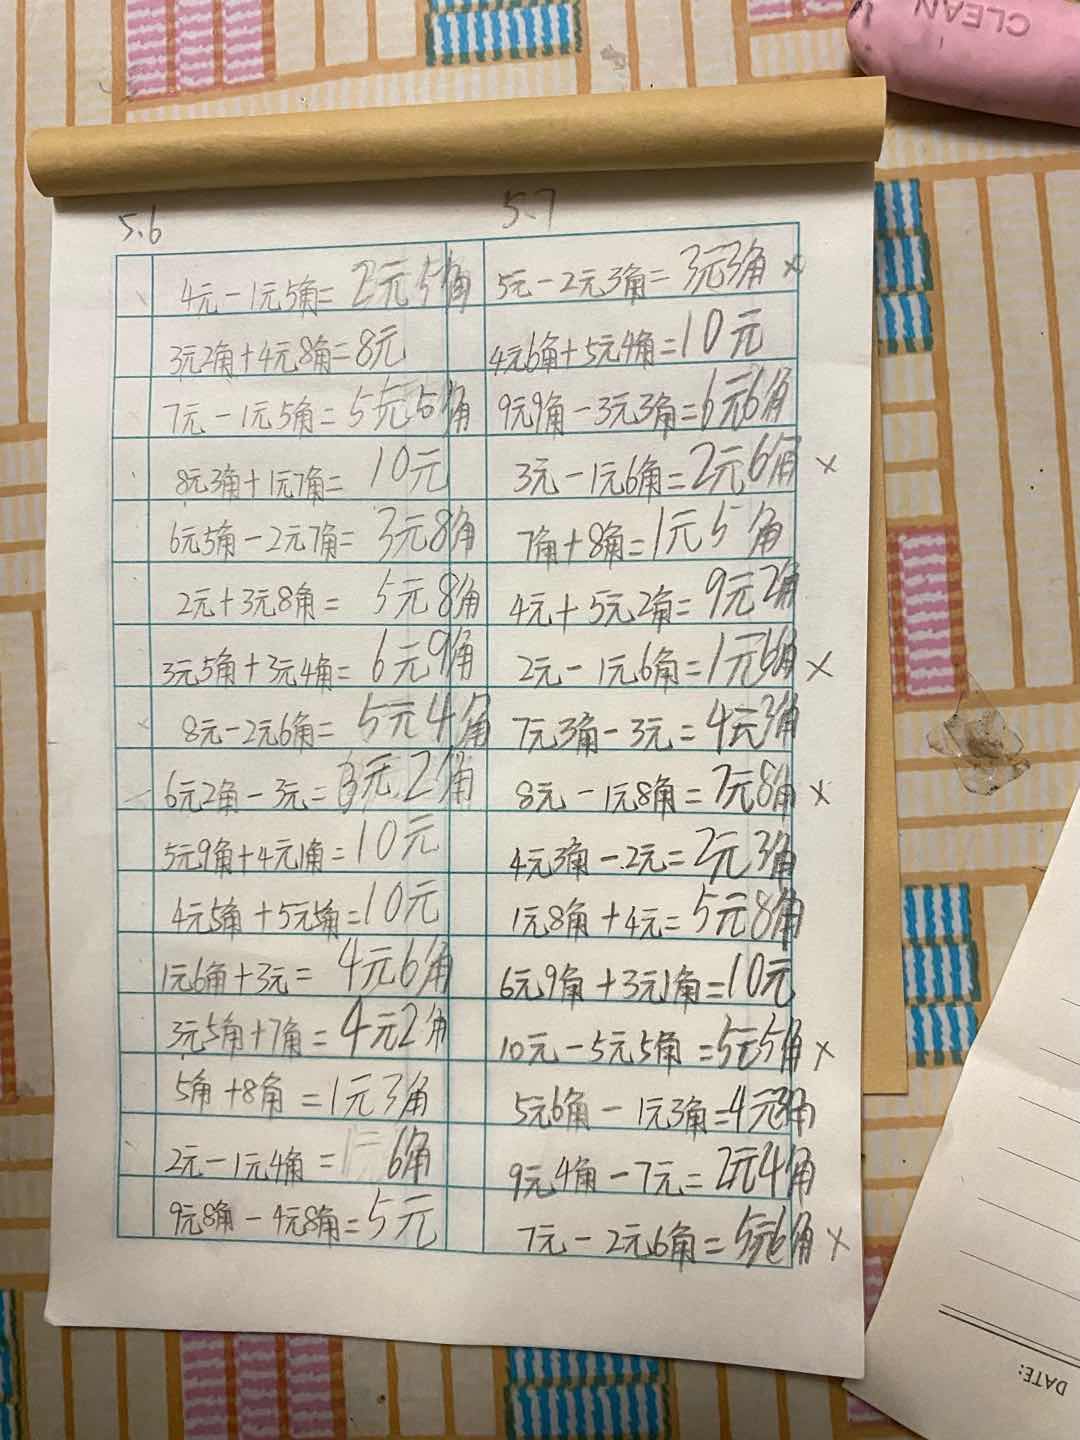 CLEAN
5.6
4元-1元5角=2元5角
3元2角+4元8角=8元
7元-1元5角=5元5角
8元3角+1元7角=10元
6元5角-2元7角=3元8角
2元+3元8角=5元8角
3元5角+3元4角=6元9角
8元-2元6角=5元4角
6元2角-3元=3元2角
5元9角+4元1角=10元
4元5角+5元5角=10元
1元6角+3元=4元6角
3元5角+7角=4元2角
5角+8角=1元3角
2元-1元4角=6角
9元8角-4元8角=5元
5.7
5元-2元3角=3元3角 ×
4元6角+5元4角=10元
9元9角-3元3角=6元6角
3元-1元6角=2元6角 ×
7角+8角=1元5角
4元+5元2角=9元2角
2元-1元6角=1元6角 ×
7元3角-3元=4元3角
8元-1元8角=7元8角 ×
4元3角-2元=2元3角
1元8角+4元=5元8角
6元9角+3元1角=10元
10元-5元5角=5元5角 ×
5元6角-1元3角=4元3角
9元4角-7元=2元4角
7元-2元6角=5元6角 ×
DATE: